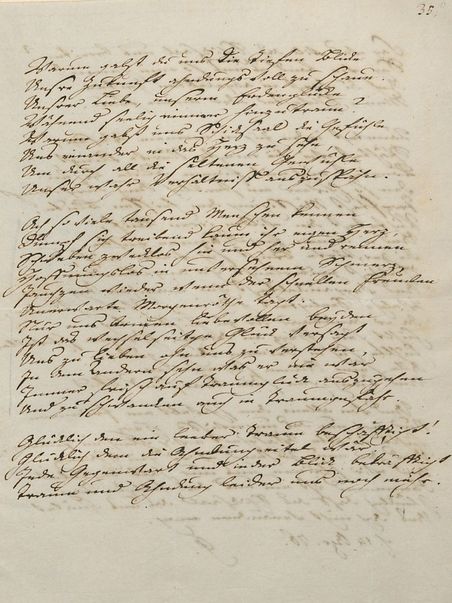 35.
Warum gabst du uns die tiefen Blicke
Unsre Zukunft ahndungsvoll zu schaun
Unsrer Liebe, unserm Erdenglücke
Wähnend seelig nimmer hinzutraun?
Warum gabst uns Schicksaal die Gefühle
Uns einander in das Herz zu sehn,
Um durch all die seltenen Gewühle
Unser wahr Verhältniss auszuspähn.
Ach so viele tausend Menschen kennen
Dumpf sich treibend kaum ihr eigen Herz,
Schweben zwecklos hin und her und rennen
Hoffnungslos in unversehnem Schmerz,
Jauchzen wieder wenn der schnellen Freuden
Unerwarte Morgenröthe tagt.
Nur uns Armen liebevollen beyden
Ist das wechselseitge Glück versagt
Uns zu lieben ohn uns zu verstehen,
In dem andern sehn was er nie war
Immer frisch auf Traumglück auszugehen
Und zu schwanken auch in Traumgefahr.
Glücklich den ein leerer Traum beschäfftigt!
Glücklich dem die Ahndung eitel wär!
Jede Gegenwart und jeder Blick bekräfftigt
Traum und Ahndung leider uns noch mehr.